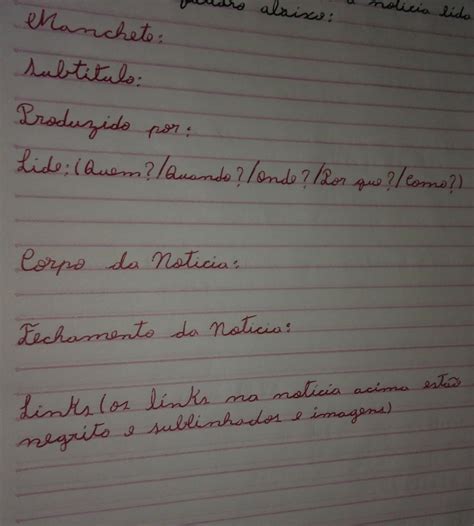 quadro abaixo: a noticia lida
Manchete:
Subtitulo:
Produzido por:
Lide: (Quem?/Quando?/Onde?/Por que?/Como?)
Corpo da Noticia:
Fechamento da Noticia:
Links (os links na noticia acima estão
negrito e sublinhados e imagens)